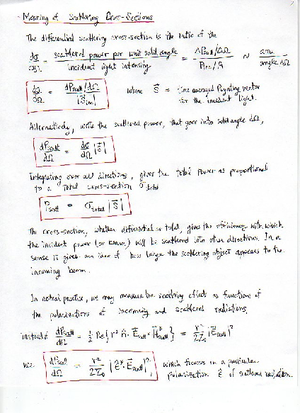 Meaning of Scattering Cross-Sections
The differential scattering cross-section is the ratio of the
dσ/dΩ = scattered power per unit solid angle / incident light intensity = ΔPscatt/ΔΩ / Pinc/A ~ area / angle ΔΩ
dσ/dΩ = dPscatt/dΩ / |S̄inc| where S̄ = time averaged Poynting vector
for the incident light.
Alternatively, write the scattered power, that goes into solid angle dΩ,
dPscatt/dΩ = dσ/dΩ |S̄|
Integrating over all directions, gives the total power as proportional
to a total cross-section σtotal
Pscatt = σtotal |S̄|
The cross-section, whether differential or total, gives the efficiency with which
the incident power (or beam) will be scattered into other directions. In a
sense it gives an idea of how large the scattering object appears to the
incoming beam.
In actual practice, we may measure the scattering effect as functions of
the polarizations of incoming and scattered radiations.
dPscatt/dΩ = ½ Re{r² n̂ · Ēscatt × H̄*scatt} = r²/2Z₀ |Ēscatt|²
use dPscatt/dΩ = r²/2Z₀ |ε̂* · Ēscatt|², which focuses on a particular
polarization ε̂ of outgoing radiation.